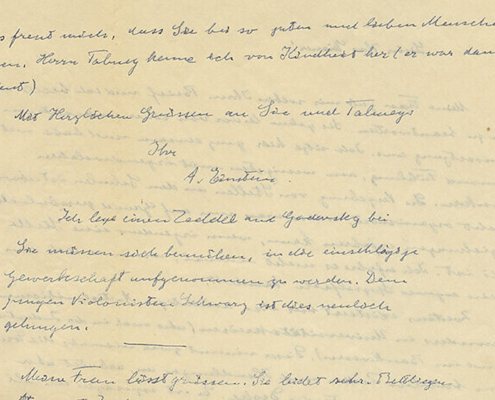 s freut mich, dass Sie bei so guten und lieben Mensche
en. Herrn Talmey kenne ich von Kindheit her (er war dam
ent)
Mit Herzlichen Grüssen an Sie und Talmeys
Ihr
A. Einstein.
Ich lege einen Zeddel an Godowsky bei
Sie müssen sich bemühen, in die einschlägige
Gewerkschaft aufgenommen zu werden. Dem
jungen Violonisten Schwarz ist dies neulich
gelungen.
Meine Frau lässt grüssen. Sie leidet sehr. Bettlägerig